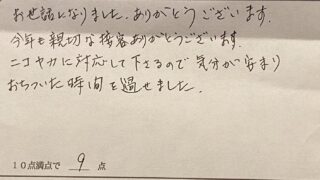 お世話になりました。ありがとうございます。
今年も親切な接客ありがとうございます。
ニコヤカに対応して下さるので気分が安まり
おちついた時間を過せました。
10点満点で 9 点